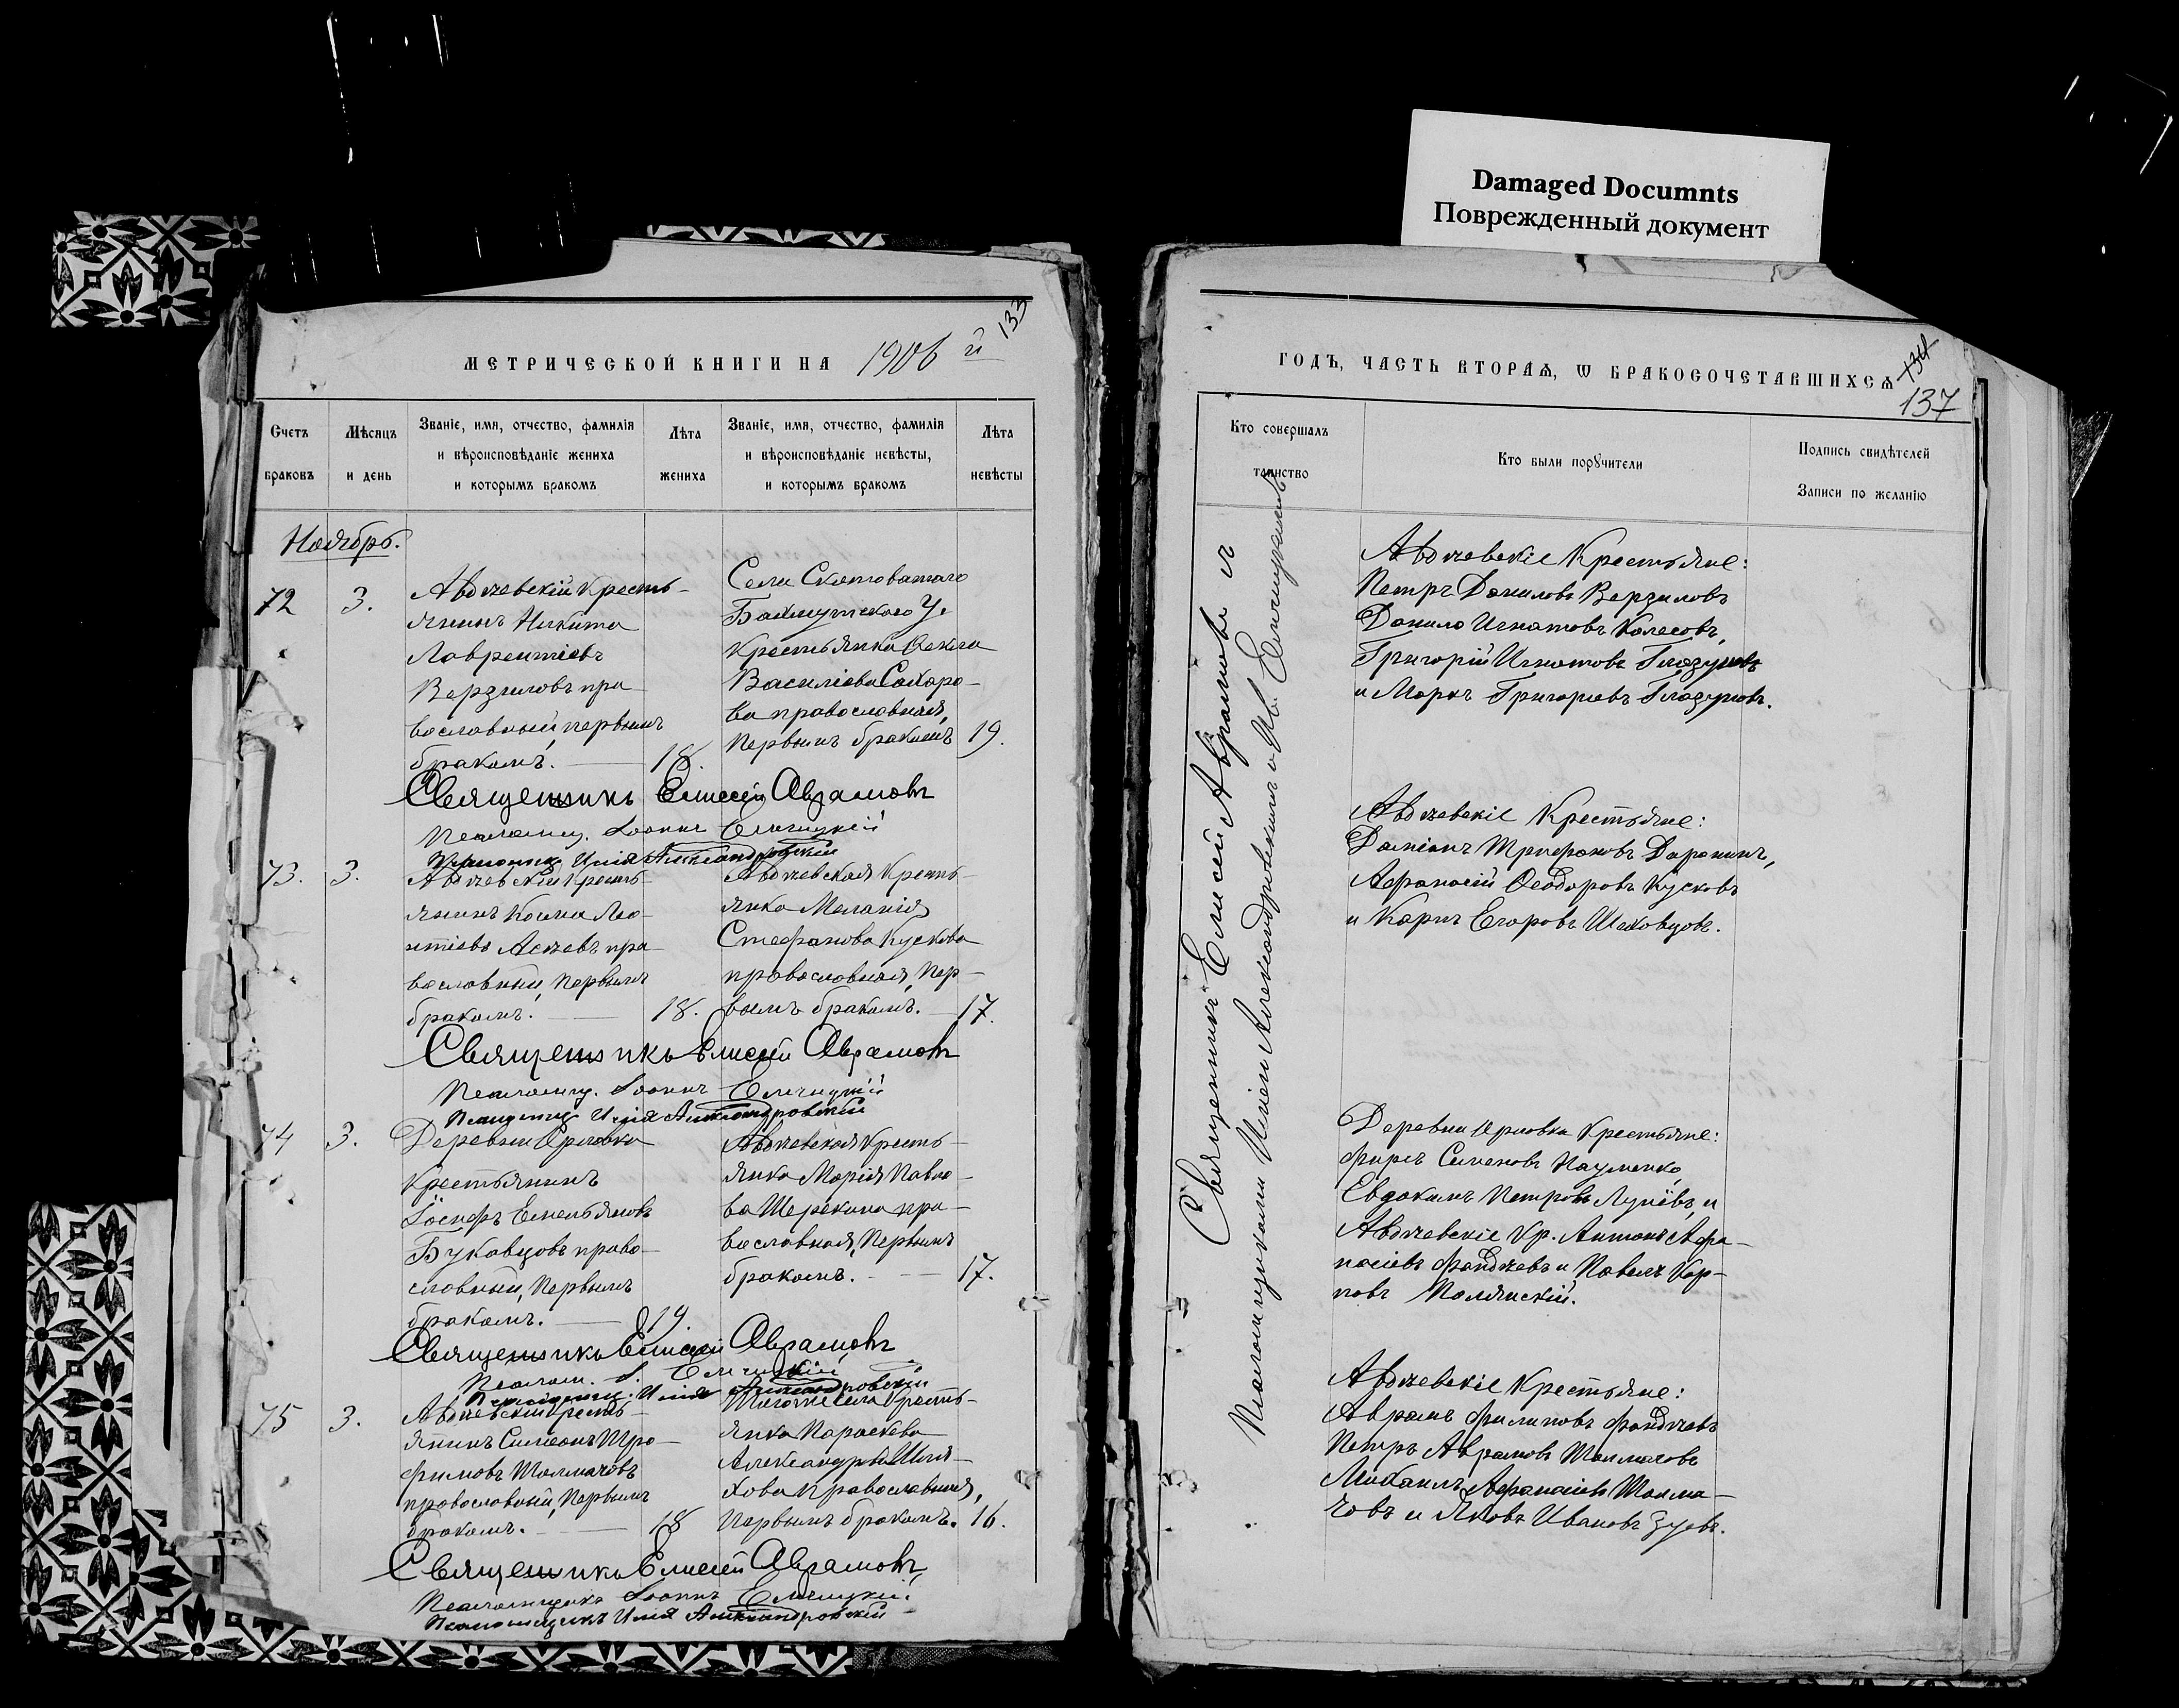 Damaged Documnts
Поврежденный документ
МЕТРИЧЕСКОЙ КНИГИ НА 1906 й
133
Счетъ браковъ
Мѣсяцъ и день
Званіе, имя, отчество, фамилія и вѣроисповѣданіе жениха и которымъ бракомъ
Лѣта жениха
Званіе, имя, отчество, фамилія и вѣроисповѣданіе невѣсты, и которымъ бракомъ
Лѣта невѣсты
Ноябрь.
72
3.
Авдѣевскій Кресть-
янинъ Никита
Лаврентіевъ
Верзиловъ пра-
вославный, первымъ
бракомъ. — 18.
Села Скотоватаго
Бахмутскаго У.
Крестьянка
Василіева Сахаро-
ва православная,
первымъ бракомъ 19.
Священникъ Елисей Авраамовъ
Псаломщ. Іоаннъ Ельчицкій
Псаломщ. Илія Александровскій
73.
3.
Авдѣевскій Кресть-
янинъ Косма Лео-
нтіевъ пра-
вославный, первымъ
бракомъ. — 18.
Авдѣевская Кресть-
янка Меланія
Стефанова Кускова
православная, пер-
вымъ бракомъ. — 17.
Священникъ Елисей Авраамовъ
Псаломщ. Іоаннъ Ельчицкій
Псаломщ. Илія Александровскій
74
3.
Деревни Орловка
Крестьянинъ
Іосифъ Емельяновъ
Буковцовъ право-
славный, первымъ
бракомъ. — 19.
Авдѣевская Кресть-
янка Марія Павло-
ва Шерекина пра-
вославная, первымъ
бракомъ. — 17.
Священникъ Елисей Авраамовъ
Псалом. І. Ельчицкій
Псаломщ. Илія Александровскій
75
3.
Авдѣевскій Кресть-
янинъ Симеонъ Тро-
фимовъ Толмачовъ
православный, первымъ
бракомъ. — 18
Кресть-
янка Параскева
Александрова Шля-
хова православная,
первымъ бракомъ. 16.
Священникъ Елисей Авраамовъ
Псаломщикъ Іоаннъ Ельчицкій
Псаломщикъ Илія Александровскій
ГОДЪ, ЧАСТЬ ВТОРАѦ, Ѡ БРАКОСОЧЕТАВШИХСѦ
134
137
Кто совершалъ таинство
Кто были порꙋчители
Подпись свидѣтелей
Записи по желанію
Священникъ Елисей Авраамовъ съ
Псаломщиками Иліею Александровскимъ и Ив. Ельчицкимъ
Авдѣевскіе Крестьяне:
Петръ Даниловъ Верзиловъ
Данило Игнатовъ Колесовъ,
Григорій Игнатовъ Глазуновъ
и Маркъ Григорьевъ Глазуновъ.
Авдѣевскіе Крестьяне:
Даміанъ Трифоновъ Даронинъ,
Афанасій Ѳеодоровъ Кусковъ
и Карпъ Егоровъ Шаховцовъ.
Деревни Орловка Крестьяне:
Фирсъ Симеоновъ Науменко,
Евдокимъ Петровъ Лунёвъ, и
Авдѣевскіе Кр. Антонъ Афа-
насіевъ Фандѣевъ и Павелъ Кар-
повъ Полянскій.
Авдѣевскіе Крестьяне:
Аврамъ Филиповъ Фандѣевъ
Петръ Аврамовъ Толмачовъ
Михаилъ Афанасіевъ Толма-
човъ и Яковъ Ивановъ Зуевъ.